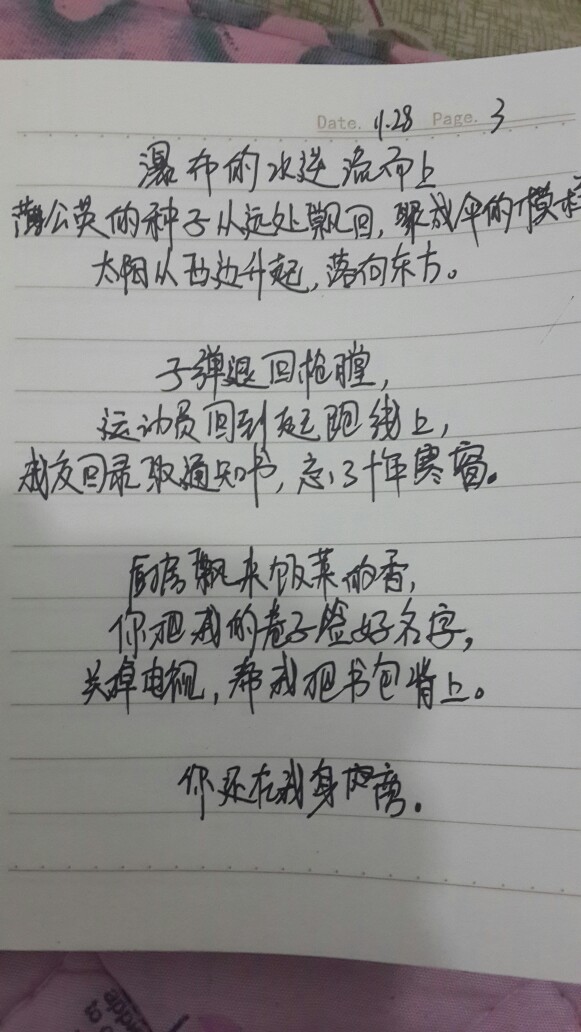 Date. 11.28 Page. 3
瀑布的水逆流而上
蒲公英的种子从远处飘回，聚成伞的模样
太阳从西边升起，落向东方。
子弹退回枪膛，
运动员回到起跑线上，
我交回录取通知书，忘了十年寒窗。
厨房飘来饭菜的香，
你把我的卷子签好名字，
关掉电视，帮我把书包背上。
你还在我身旁。